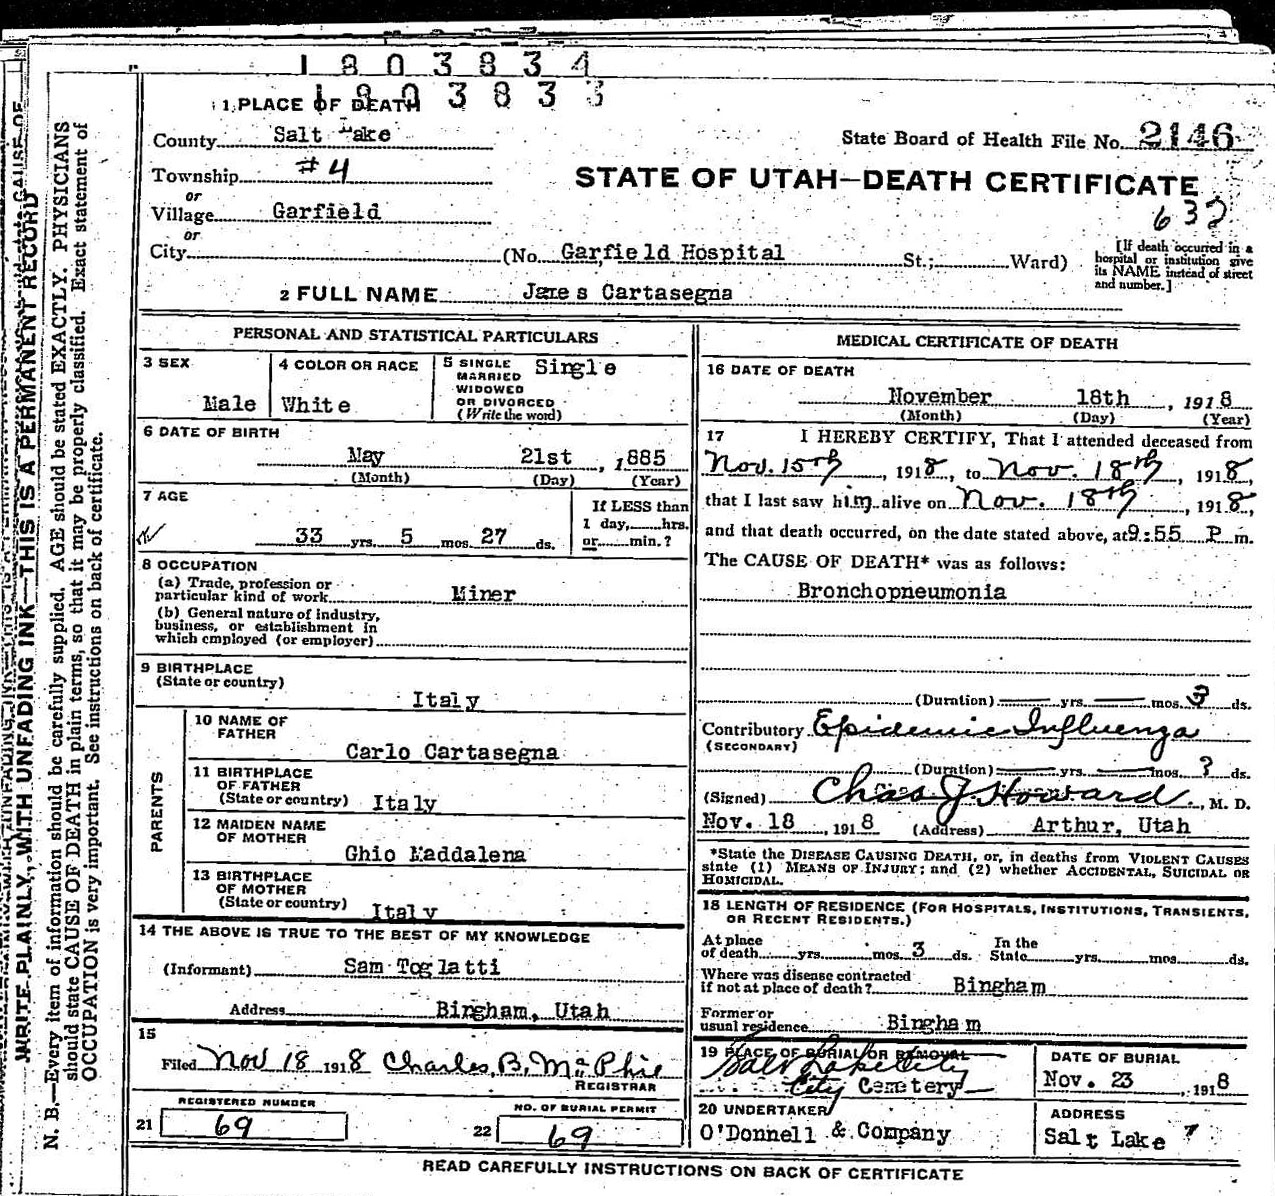 1803834
1803833
1 PLACE OF DEATH
County Salt Lake
State Board of Health File No. 2146
Township #4
STATE OF UTAH—DEATH CERTIFICATE
or
Village Garfield
632
or
City (No. Garfield Hospital St.; Ward)
[If death occurred in a hospital or institution give its NAME instead of street and number.]
2 FULL NAME James Cartasegna
PERSONAL AND STATISTICAL PARTICULARS
3 SEX
Male
4 COLOR OR RACE
White
5 SINGLE
MARRIED
WIDOWED
OR DIVORCED
(Write the word)
Single
6 DATE OF BIRTH
May 21st, 1885
(Month) (Day) (Year)
7 AGE
33 yrs. 5 mos. 27 ds.
If LESS than
1 day, hrs.
or min.?
8 OCCUPATION
(a) Trade, profession or
particular kind of work Miner
(b) General nature of industry,
business, or establishment in
which employed (or employer)
9 BIRTHPLACE
(State or country)
Italy
PARENTS
10 NAME OF
FATHER
Carlo Cartasegna
11 BIRTHPLACE
OF FATHER
(State or country) Italy
12 MAIDEN NAME
OF MOTHER
Ghio Maddalena
13 BIRTHPLACE
OF MOTHER
(State or country) Italy
14 THE ABOVE IS TRUE TO THE BEST OF MY KNOWLEDGE
(Informant) Sam Toglatti
Address Bingham, Utah
15
Filed Nov 18 1918 Charles B. McPhie
REGISTRAR
REGISTERED NUMBER
21 69
NO. OF BURIAL PERMIT
22 69
MEDICAL CERTIFICATE OF DEATH
16 DATE OF DEATH
November 18th, 1918
(Month) (Day) (Year)
17 I HEREBY CERTIFY, That I attended deceased from
Nov. 15th, 1918, to Nov. 18th, 1918,
that I last saw him alive on Nov. 18th, 1918,
and that death occurred, on the date stated above, at 9:55 P m.
The CAUSE OF DEATH* was as follows:
Bronchopneumonia
(Duration) yrs. mos. 3 ds.
Contributory Epidemic Influenza
(SECONDARY)
(Duration) yrs. mos. ? ds.
(Signed) Chas J. Howard, M. D.
Nov. 18, 1918 (Address) Arthur, Utah
*State the DISEASE CAUSING DEATH, or, in deaths from VIOLENT CAUSES
state (1) MEANS OF INJURY; and (2) whether ACCIDENTAL, SUICIDAL OR
HOMICIDAL.
18 LENGTH OF RESIDENCE (FOR HOSPITALS, INSTITUTIONS, TRANSIENTS,
OR RECENT RESIDENTS.)
At place
of death yrs. mos. 3 ds. In the
State yrs. mos. ds.
Where was disease contracted
if not at place of death? Bingham
Former or
usual residence Bingham
19 PLACE OF BURIAL OR REMOVAL
Salt Lake City
City Cemetery
DATE OF BURIAL
Nov. 23, 1918
20 UNDERTAKER
O'Donnell & Company
ADDRESS
Salt Lake
READ CAREFULLY INSTRUCTIONS ON BACK OF CERTIFICATE
WRITE PLAINLY, WITH UNFADING INK—THIS IS A PERMANENT RECORD
N. B.—Every item of information should be carefully supplied. AGE should be stated EXACTLY. PHYSICIANS
should state CAUSE OF DEATH in plain terms, so that it may be properly classified. Exact statement of
OCCUPATION is very important. See instructions on back of certificate.